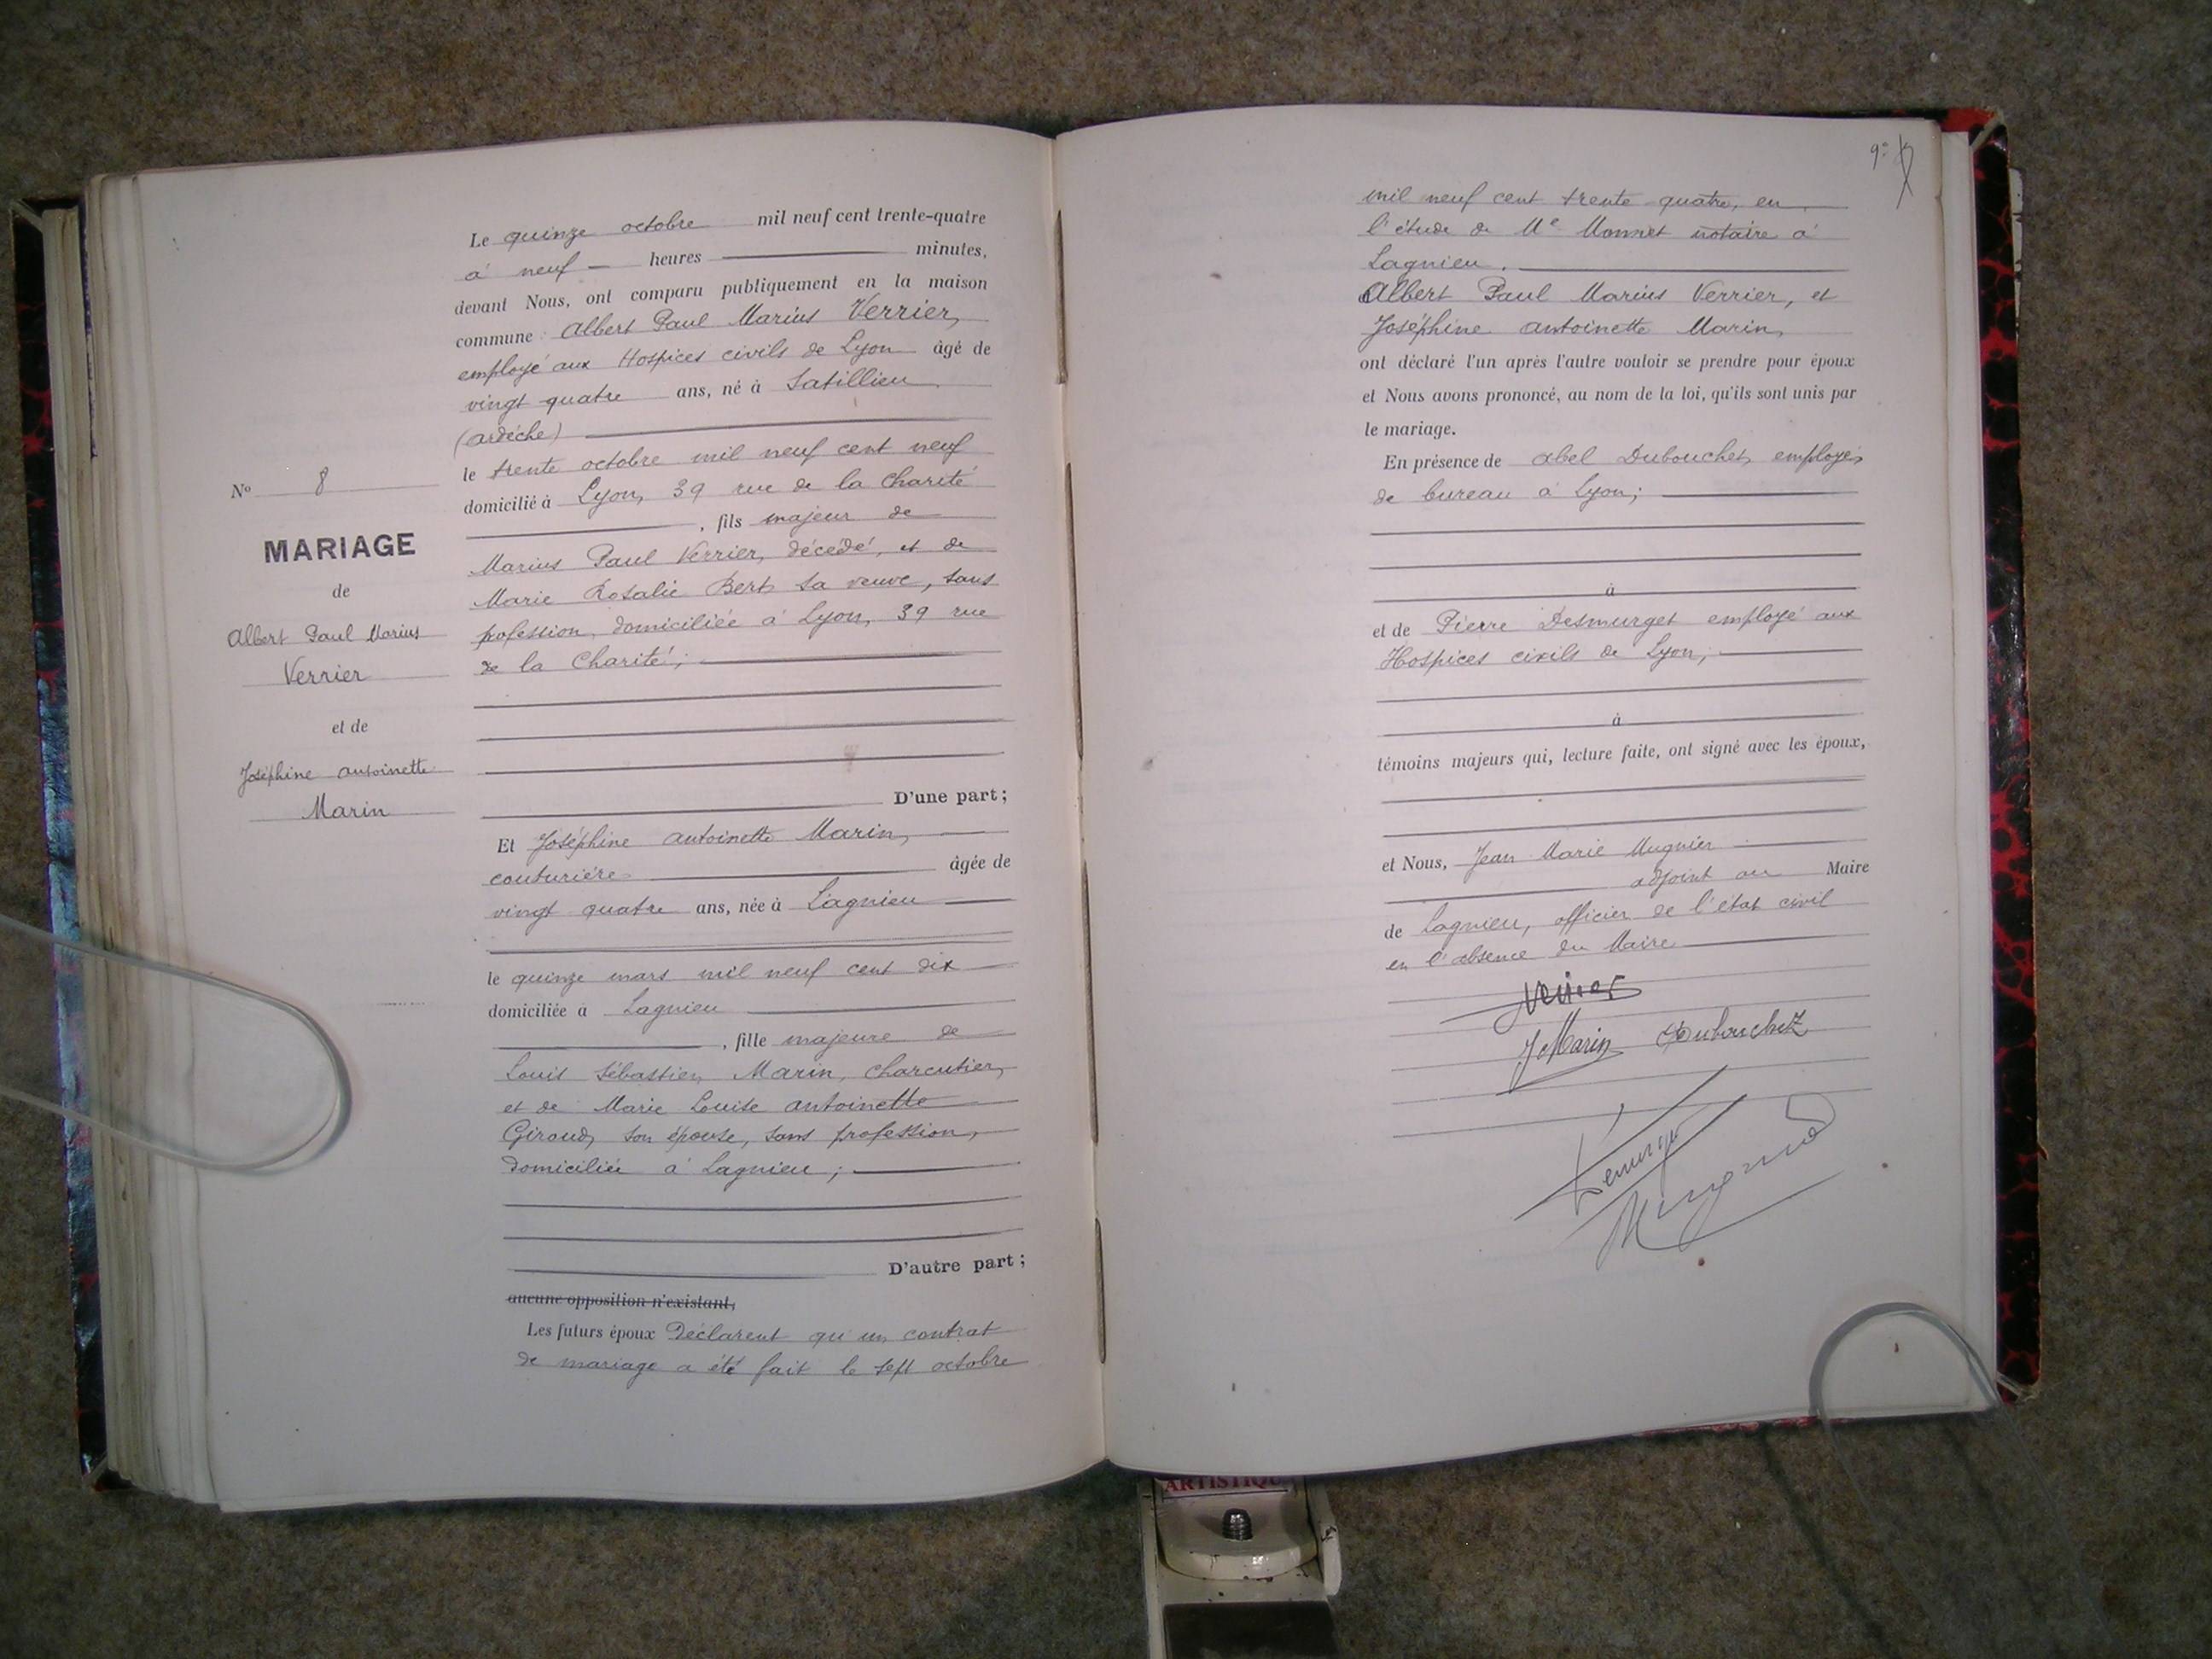 N° 8
MARIAGE
de
Albert Paul Marius
Verrier
et de
Joséphine antoinette
Marin
Le quinze octobre mil neuf cent trente-quatre
à neuf heures minutes,
devant Nous, ont comparu publiquement en la maison
commune : Albert Paul Marius Verrier,
employé aux Hospices civils de Lyon âgé de
vingt quatre ans, né à Satillieu
(ardèche)
le trente octobre mil neuf cent neuf
domicilié à Lyon, 39 rue de la Charité
, fils majeur de
Marius Paul Verrier, décédé, et de
Marie Rosalie Bert, sa veuve, sans
profession, domiciliée à Lyon, 39 rue
de la Charité ;
D'une part ;
Et Joséphine antoinette Marin,
couturière âgée de
vingt quatre ans, née à Lagnieu
le quinze mars mil neuf cent dix
domiciliée à Lagnieu
, fille majeure de
Louis Sébastien Marin, charcutier,
et de Marie Louise antoinette
Giroud, son épouse, sans profession,
domiciliés à Lagnieu ;
D'autre part ;
aucune opposition n'existant,
Les futurs époux Déclarent qu'un contrat
de mariage a été fait le sept octobre
9°
mil neuf cent trente quatre, en
l'étude de Me Monnet notaire à
Lagnieu.
Albert Paul Marius Verrier, et
Joséphine antoinette Marin,
ont déclaré l'un après l'autre vouloir se prendre pour époux
et Nous avons prononcé, au nom de la loi, qu'ils sont unis par
le mariage.
En présence de abel Dubouchet, employé
de bureau à Lyon ;
à
et de Pierre Desmurget employé aux
Hospices civils de Lyon ;
à
témoins majeurs qui, lecture faite, ont signé avec les époux,
et Nous, Jean Marie Mugnier
adjoint au Maire
de Lagnieu, officier de l'état civil
en l'absence du Maire
Verrier
J Marin Dubouchet
ARTISTIQUE